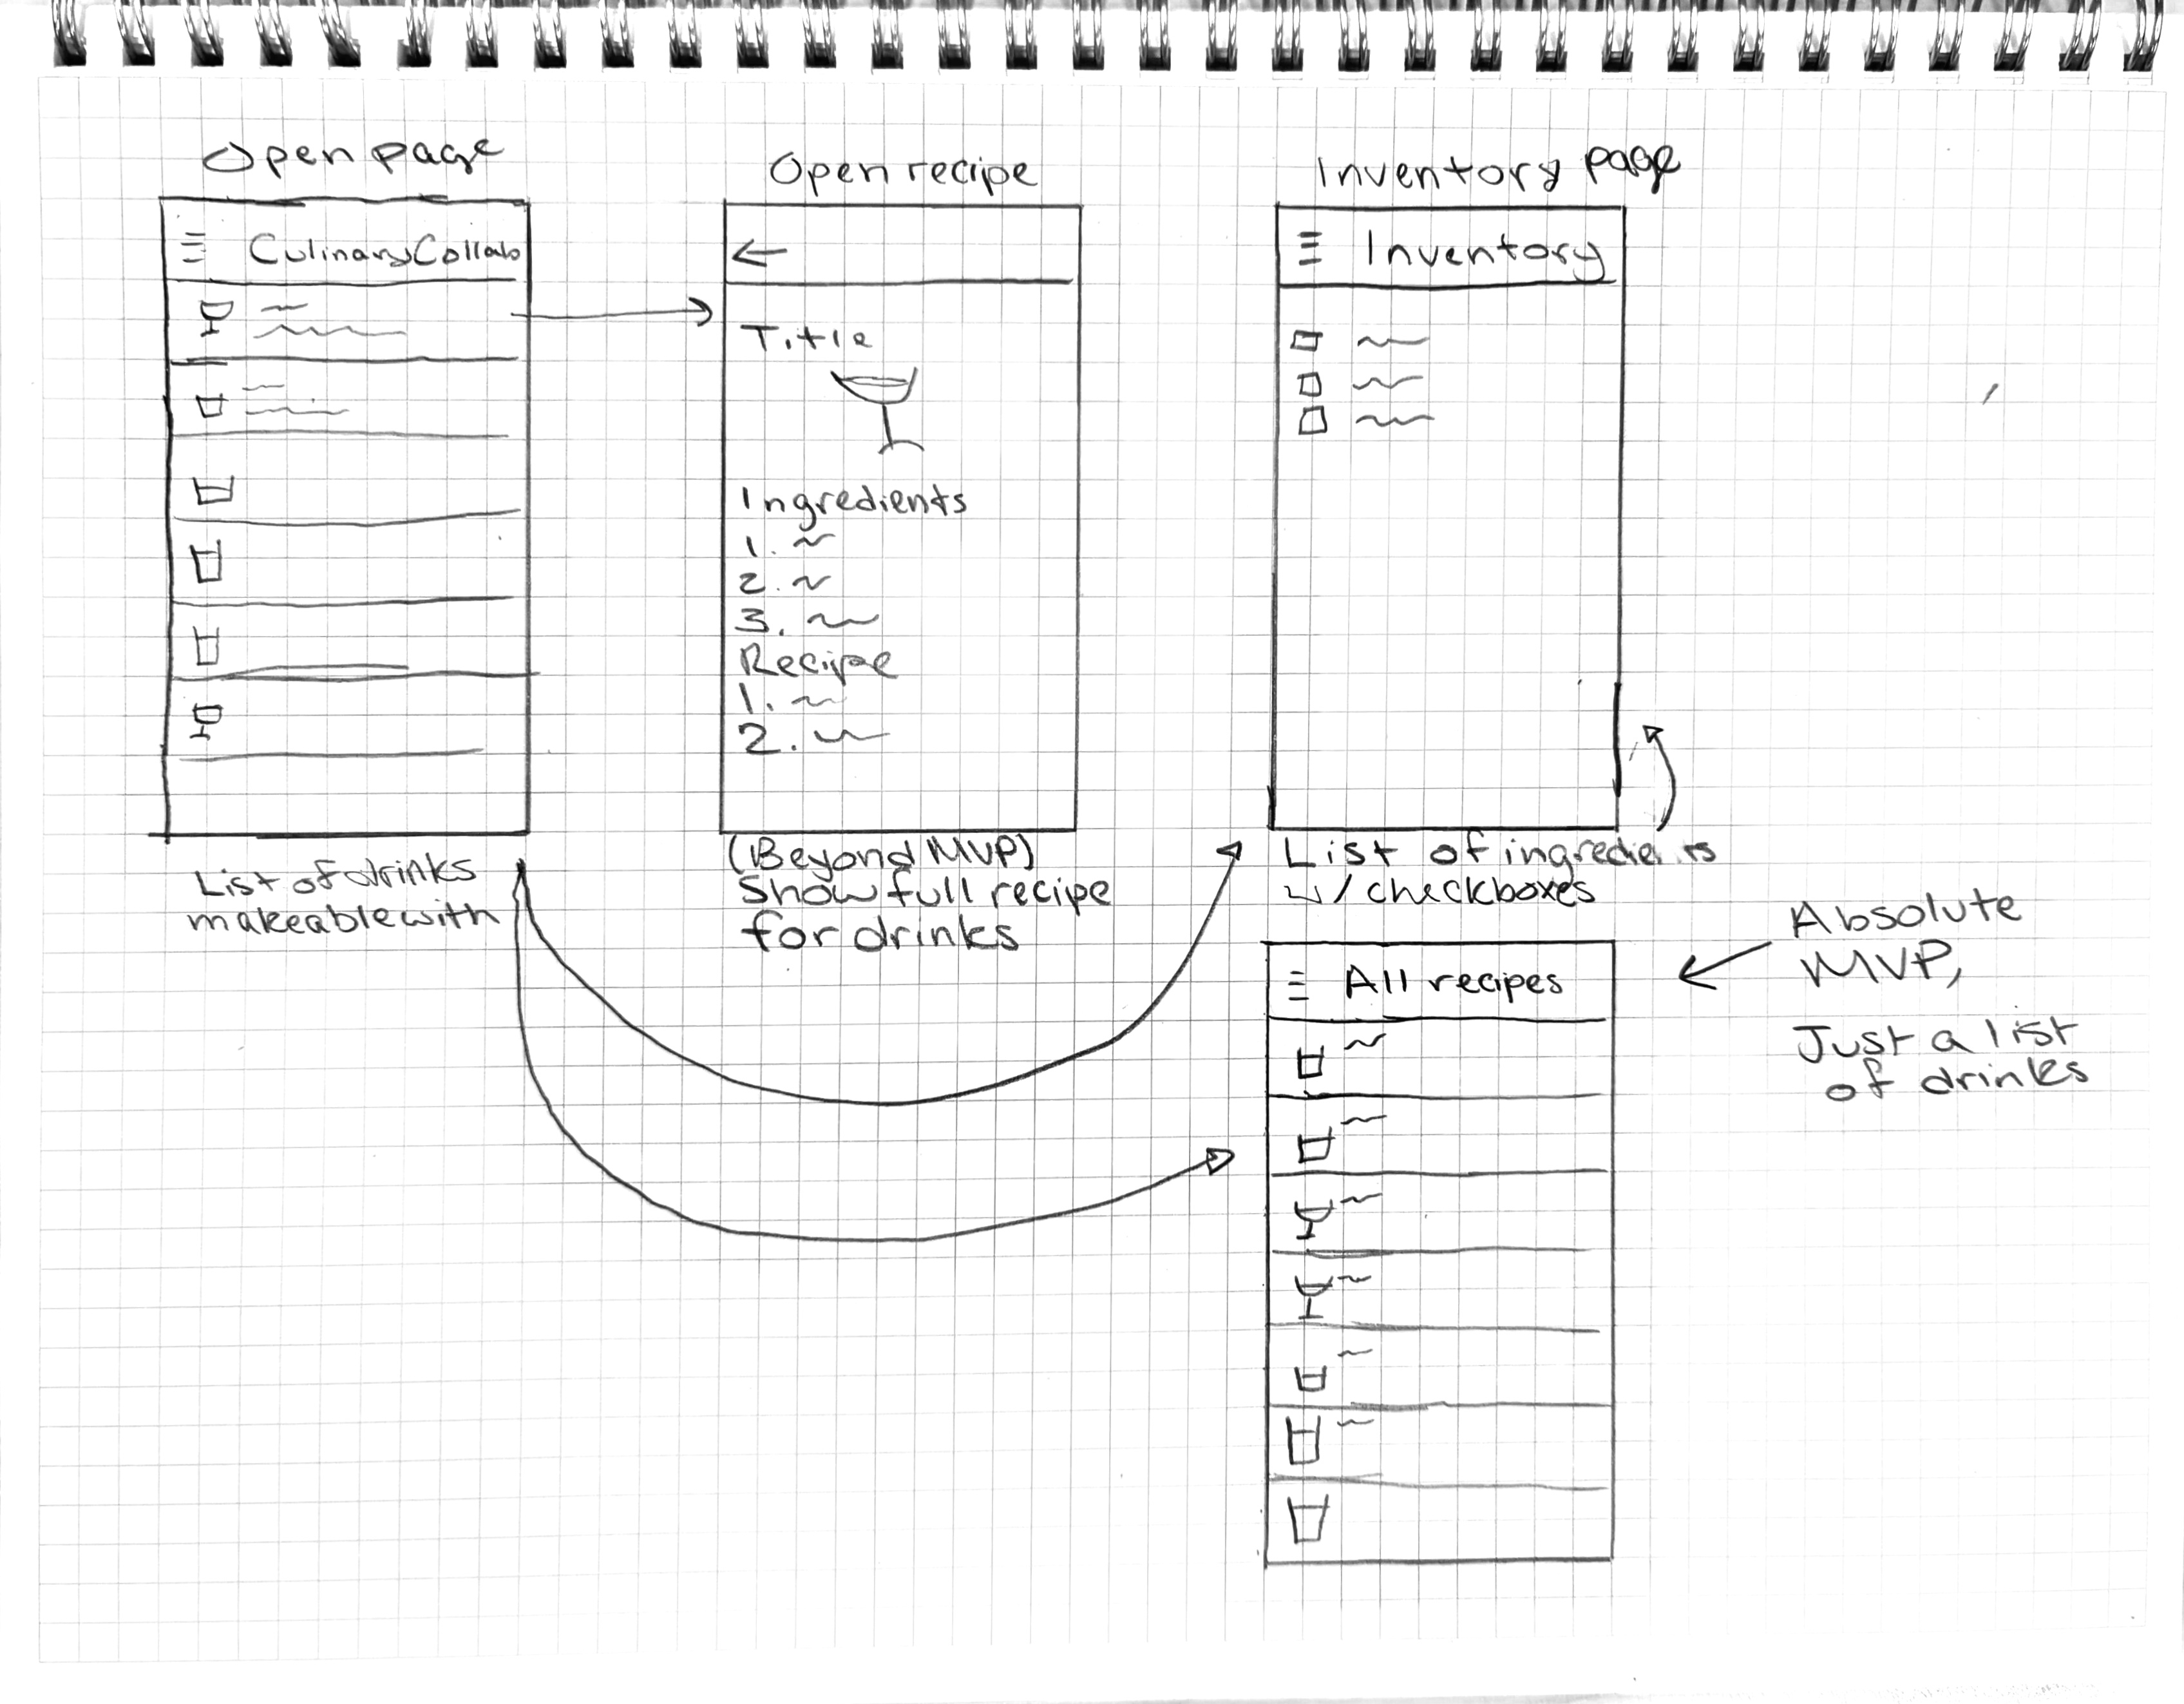 Open page
CulinaryCollab
List of drinks
makeable with
Open recipe
Title
Ingredients
1.
2.
3.
Recipe
1.
2.
(Beyond MVP)
Show full recipe
for drinks
Inventory page
Inventory
List of
w/ checkboxes
All recipes
Absolute
MVP,
Just a list
of drinks